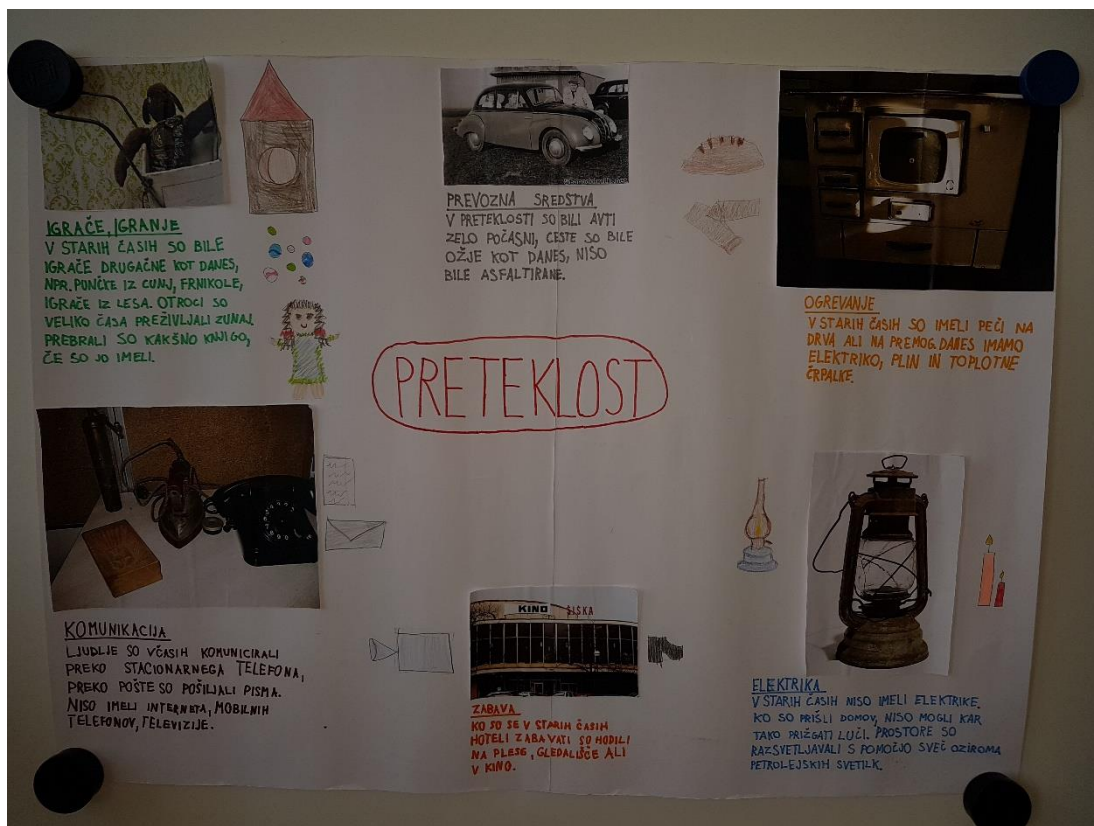 IGRAČE, IGRANJE
V STARIH ČASIH SO BILE
IGRAČE DRUGAČNE KOT DANES,
NPR. PUNČKE IZ CUNJ, FRNIKOLE,
IGRAČE IZ LESA. OTROCI SO
VELIKO ČASA PREŽIVLJALI ZUNAJ.
PREBRALI SO KAKŠNO KNJIGO,
ČE SO JO IMELI.
PREVOZNA SREDSTVA
V PRETEKLOSTI SO BILI AVTI
ZELO POČASNI, CESTE SO BILE
OŽJE KOT DANES, NISO
BILE ASFALTIRANE.
OGREVANJE
V STARIH ČASIH SO IMELI PEČI NA
DRVA ALI NA PREMOG. DANES IMAMO
ELEKTRIKO, PLIN IN TOPLOTNE
ČRPALKE.
PRETEKLOST
KOMUNIKACIJA
LJUDJE SO VČASIH KOMUNICIRALI
PREKO STACIONARNEGA TELEFONA,
PREKO POŠTE SO POŠILJALI PISMA.
NISO IMELI INTERNETA, MOBILNIH
TELEFONOV, TELEVIZIJE.
KINO ŠIŠKA
ZABAVA
KO SO SE V STARIH ČASIH
HOTELI ZABAVATI SO HODILI
NA PLESE, GLEDALIŠČE ALI
V KINO.
ELEKTRIKA
V STARIH ČASIH NISO IMELI ELEKTRIKE.
KO SO PRIŠLI DOMOV, NISO MOGLI KAR
TAKO PRIŽGATI LUČI. PROSTORE SO
RAZSVETLJAVALI S POMOČJO SVEČ OZIROMA
PETROLEJSKIH SVETILK.